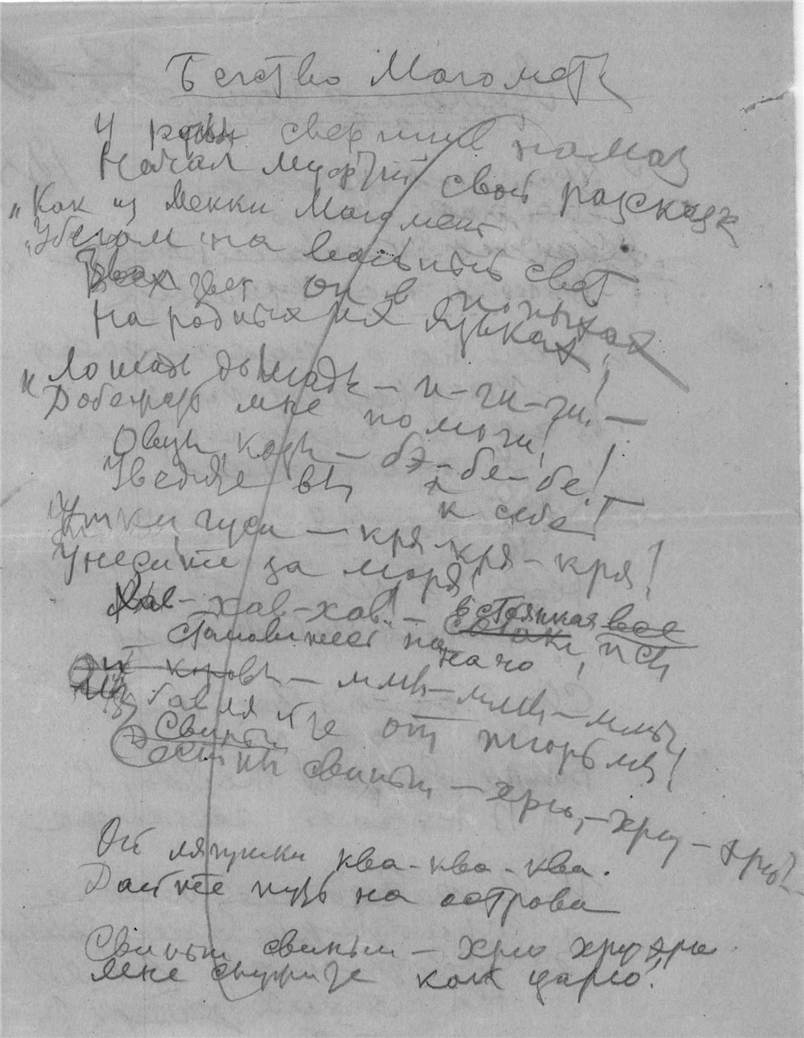 Бегство Магомета
У свершив намаз
Начал свой рассказ
„Как из Мекки Магомет
„Убегом на свет
он в попыхах
На родных языках!
„Лошадь – и-ги-ги! –
Добежать мне помоги!
Овцы, козы – бэ-бе-бе!
Уведите вы к себе!
Утки, гуси – кря-кря-кря!
Унесите за моря!
Хав-хав-хав! – все псы
Становитесь на
Ой коровы – ммы-ммы-ммы!
Избавляйте от тюрьмы!
Свиньи
свиньи – хрю, – хрю – хрю!
Ой лягушки ква-ква-ква.
Дайте путь на острова
Свиньи свиньи – хрю хрю хрю.
Мне служите как царю!